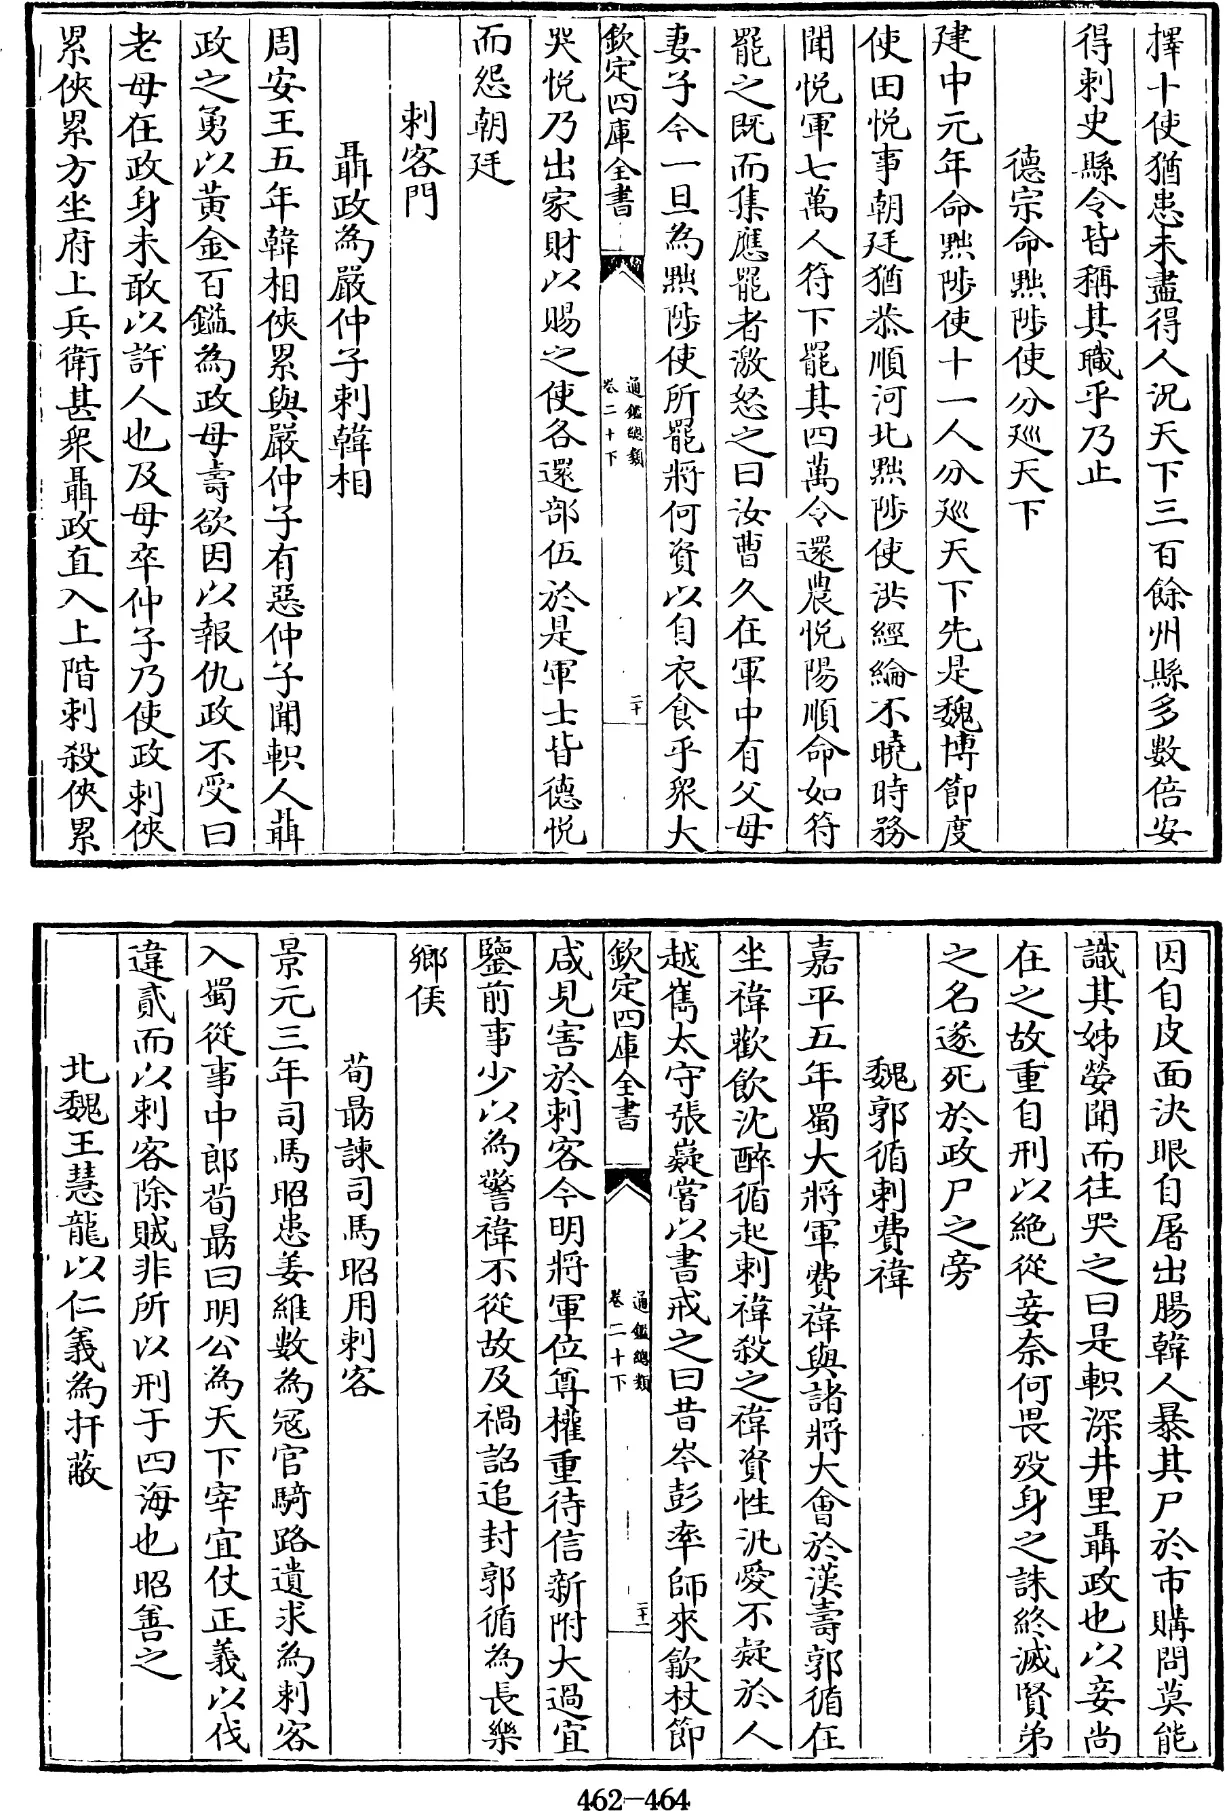 擇十使猶患未盡得人況天下三百餘州縣多數倍安
得刺史縣令皆稱其職乎乃止
德宗命黜陟使分廵天下
建中元年命黜陟使十一人分廵天下先是魏博節度
使田悦事朝廷猶恭順河北黜陟使洪經綸不曉時務
聞悦軍七萬人符下罷其四萬令還農悦陽順命如符
罷之既而集應罷者激怒之曰汝曹久在軍中有父母
妻子今一旦為黜陟使所罷將何資以自衣食乎衆大
欽定四庫全書
通鑑總類
卷二十下
二十
哭悦乃出家財以賜之使各還部伍於是軍士皆德悦
而怨朝廷
刺客門
聶政為嚴仲子刺韓相
周安王五年韓相俠累與嚴仲子有惡仲子聞軹人聶
政之勇以黃金百鎰為政母壽欲因以報仇政不受曰
老母在政身未敢以許人也及母卒仲子乃使政刺俠
累俠累方坐府上兵衛甚衆聶政直入上階刺殺俠累
因自皮面決眼自屠出腸韓人暴其尸於市購問莫能
識其姊嫈聞而往哭之曰是軹深井里聶政也以妾尚
在之故重自刑以絶從妾奈何畏歿身之誅終滅賢弟
之名遂死於政尸之旁
魏郭循刺費禕
嘉平五年蜀大將軍費禕與諸將大會於漢壽郭循在
坐禕歡飲沈醉循起刺禕殺之禕資性汎愛不疑於人
越巂太守張嶷嘗以書戒之曰昔岑彭率師來歙杖節
欽定四庫全書
通鑑總類
卷二十下
二十一
咸見害於刺客今明將軍位尊權重待信新附大過宜
鑒前事少以為警禕不從故及禍詔追封郭循為長樂
鄉侯
荀勗諫司馬昭用刺客
景元三年司馬昭患姜維數為寇官騎路遺求為刺客
入蜀從事中郎荀勗曰明公為天下宰宜仗正義以伐
違貳而以刺客除賊非所以刑于四海也昭善之
北魏王慧龍以仁義為扞蔽
462-464